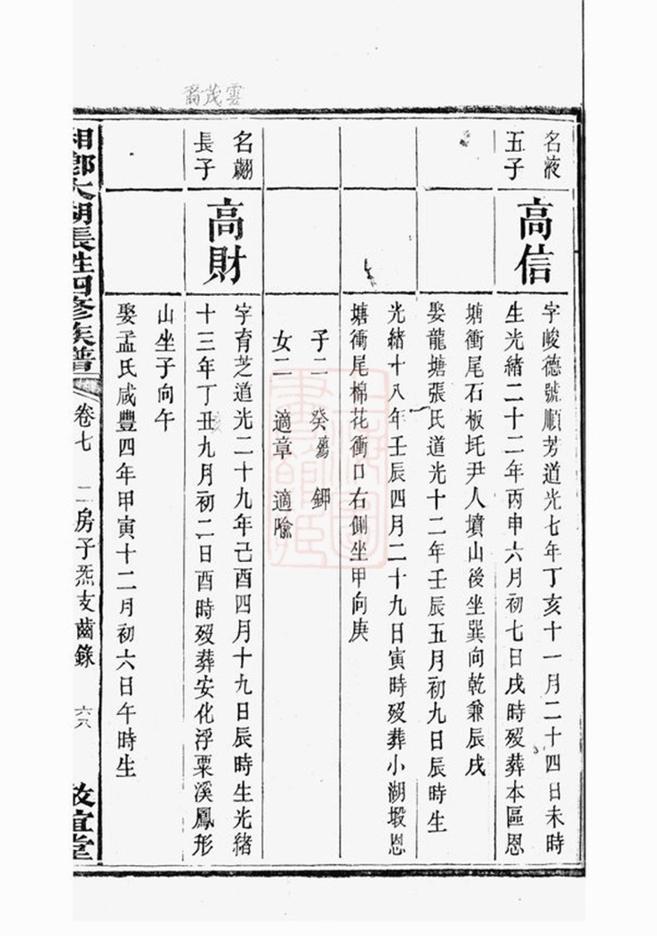 雲茂裔
名液
五子
高信
字峻德號順芳道光七年丁亥十一月二十四日未時
生光緒二十二年丙申六月初七日戌時歿葬本區恩
塘衝尾石板圫尹人墳山後坐巽向乾兼辰戌
娶龍塘張氏道光十二年壬辰五月初九日辰時生
光緒十八年壬辰四月二十九日寅時歿葬小湖塅恩
塘衝尾棉花衝口右側坐甲向庚
子二 癸 鉀
女二 適章 適隃
名翽
長子
高財
字育芝道光二十九年己酉四月十九日辰時生光緒
十三年丁丑九月初二日酉時歿葬安化浮粟溪鳳形
山坐子向午
娶孟氏咸豐四年甲寅十二月初六日午時生
湘鄉大湖張姓四修族譜
卷七 二房子炁支齒錄 六八
敦誼堂